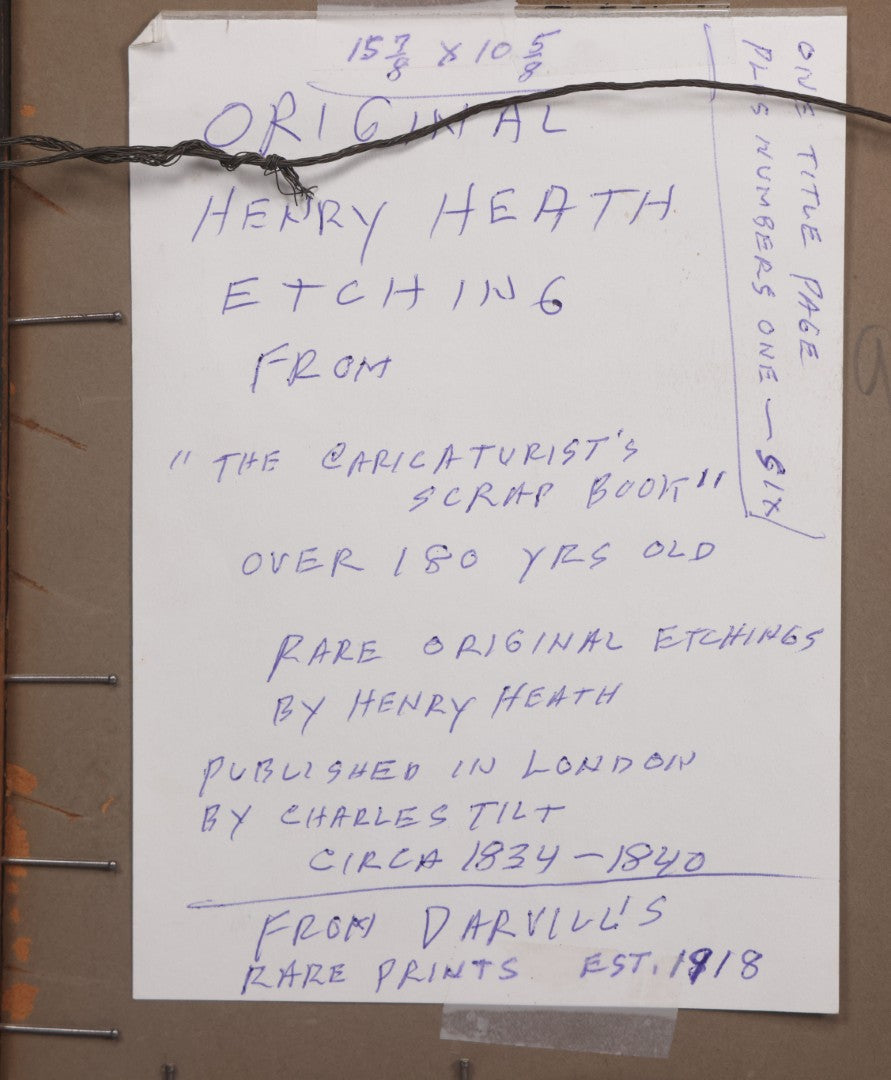 15 7/8 x 10 5/8
ORIGINAL
HENRY HEATH
ETCHING
FROM
"THE CARICATURIST'S
SCRAP BOOK"
OVER 180 YRS OLD
RARE ORIGINAL ETCHINGS
BY HENRY HEATH
PUBLISHED IN LONDON
BY CHARLES TILT
CIRCA 1834-1840
FROM DARVILL'S
RARE PRINTS EST. 1918
ONE TITLE PAGE
PLUS NUMBERS ONE - SIX